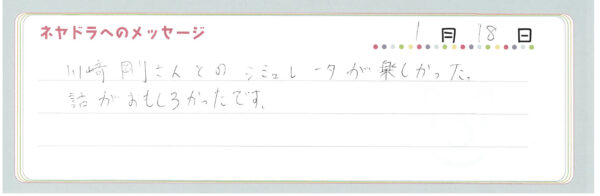 ネヤドラへのメッセージ
1月18日
川崎剛さんとのシミュレータが楽しかった。
話がおもしろかったです。